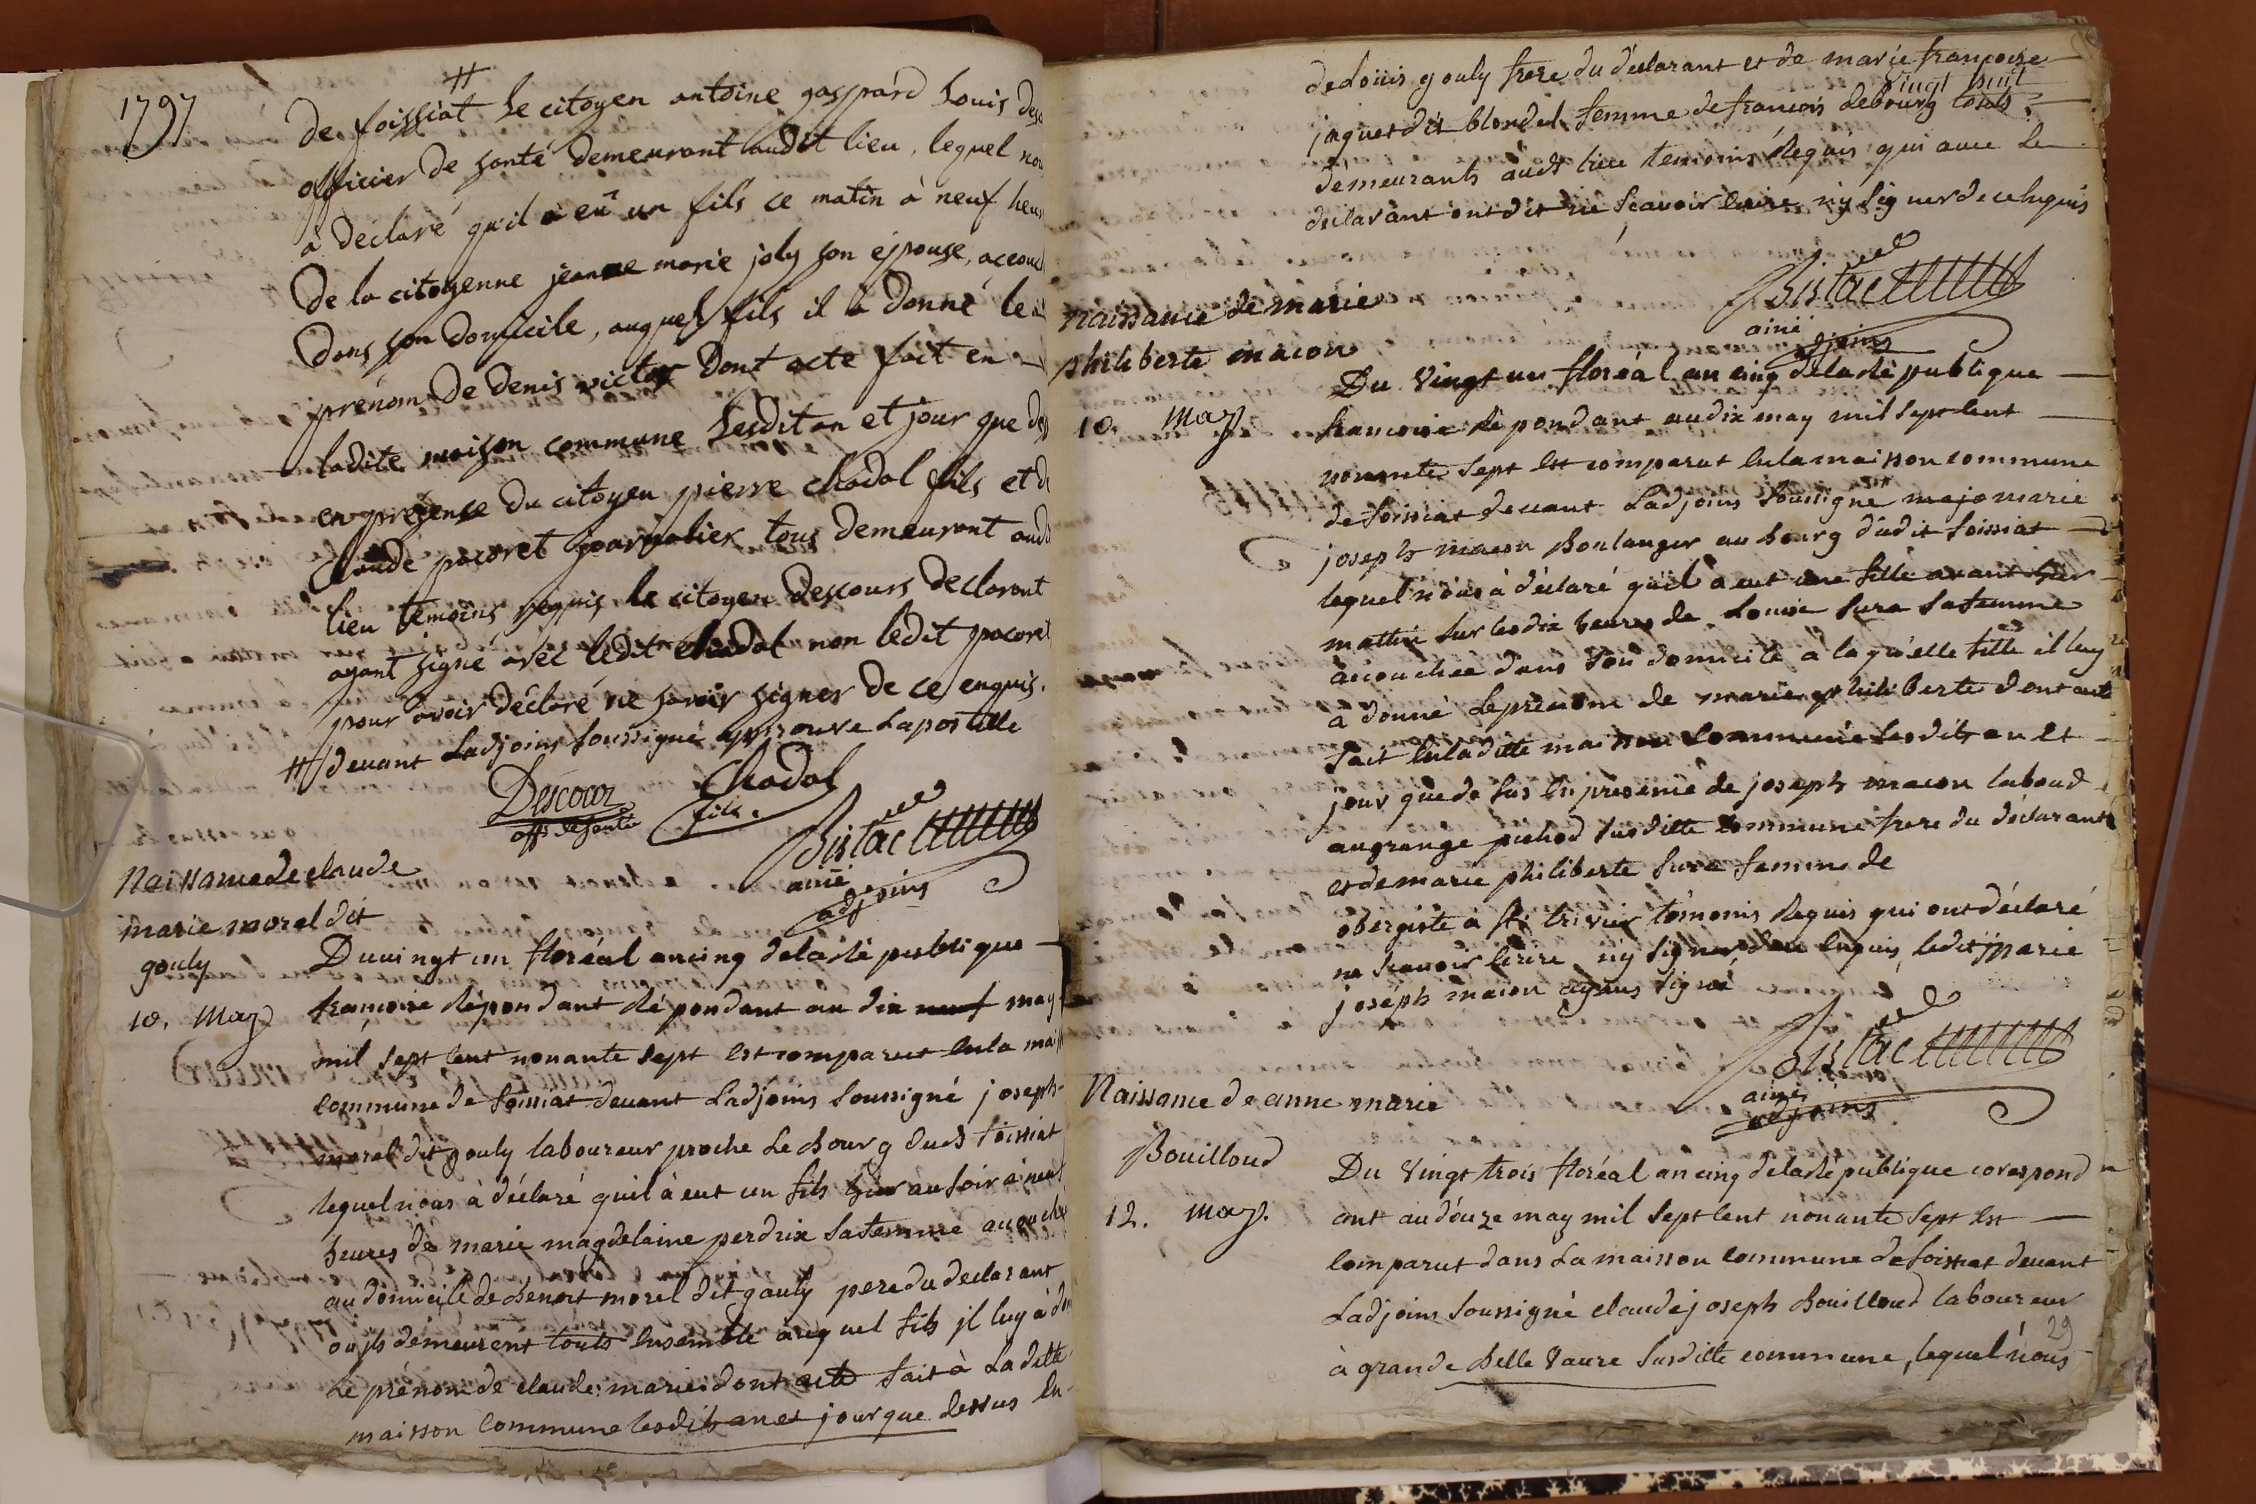 1797
de foissiat # le citoyen antoine gasppard Louis desc
officier de santé demeurant audit lieu, lequel nou
a déclaré qu'il a eû un fils ce matin à neuf heur
De la citoyenne jeanne marie joly son épouse, accouch
Dans son domicile, auquel fils il a donné le
prénom de denis victor Dont acte fait en
ladite maison commune Lesdit an et jour que des
en présense du citoyen pierre Chadal fils et de
Claude pacoret journalier tous demeurant audi
lieu témoins requis le citoyen Descours Declarant
ayant signé avec ledit Chadal non ledit pacoret
pour avoir déclaré ne savoir signer de ce enquis.
# devant Ladjoins soussigné approuve Lapostille
Descour
offr de santé
Chadal
fils.
Bistac
ainé
adjoins
Naissance de claude
marie morel dit
gouly
10. May
Du uingt un floréal an cinq de la Republique
francoise Répondant Répondant au dix neuf may
mil sept cent nonante sept est comparut en la mais
commune de foissiat devant Ladjoins soussigné joseph
morel dit gouly laboureur proche Le Bourg dudt foissiat
lequel nous à déclaré quil à eut un fils hier au soir à neuf
heures de marie magdelaine perdrix sa femme accouchée
au domicile de Benoit morel dit gouly pere du declarant
ou ils demeurent touts ensemble auquel fils jl luy à don
Le prénom de claude marie dont acte fait à La ditte
maisson commune lesdits an et jour que dessus en
de Loüis gouly frere du déclarant et de marie francoise
vingt huit
jaquet dit blondel femme de francois debourg touts
demeurants audt lieu temoins Requis qui avec Le
declarant ont dit ne scavoir ecrire ny signer de ce enquis
Bistac
ainé
adjoins
Naissance de marie
philiberte macon
10. May
Du vingt un floréal an cinq de la Republique
francoise Répondant au dix may mil sept cent
nonante sept est comparut en la maisson commune
de foissiat devant Ladjoins soussigné marie
joseph macon Boulanger au bourg dudit foissiat
lequel nous à déclaré quil à eut une fille avant hier
mattin sur les dix heures de Louise Sura sa femme
accouchée dans son domicile a laquelle fille il luy
a donné le prénom de marie philiberte dont acte
fait en la ditte maisson commune lesdits an et
jour que de sus en présence de joseph macon labourd
au grange pichod susditte commune frere du déclarant
et de marie philiberte Sura femme de
obergiste a st trivier témoins Requis qui ont déclaré
ne scavoir ecrire ny signer de ce enquis, ledit marie
joséph macon ayant signé
Bistac
ainé
adjoins
Naissance de anne marie
Bouilloud
12. may.
Du vingt trois floréal an cinq de la Republique corespond
ant au douze may mil sept cent nonante sept est
comparut dans La maisson commune de foissiat devant
Ladjoins soussigné claude joseph Bouilloud laboureur
à grande Belle vaure susditte commune, lequel nous
29